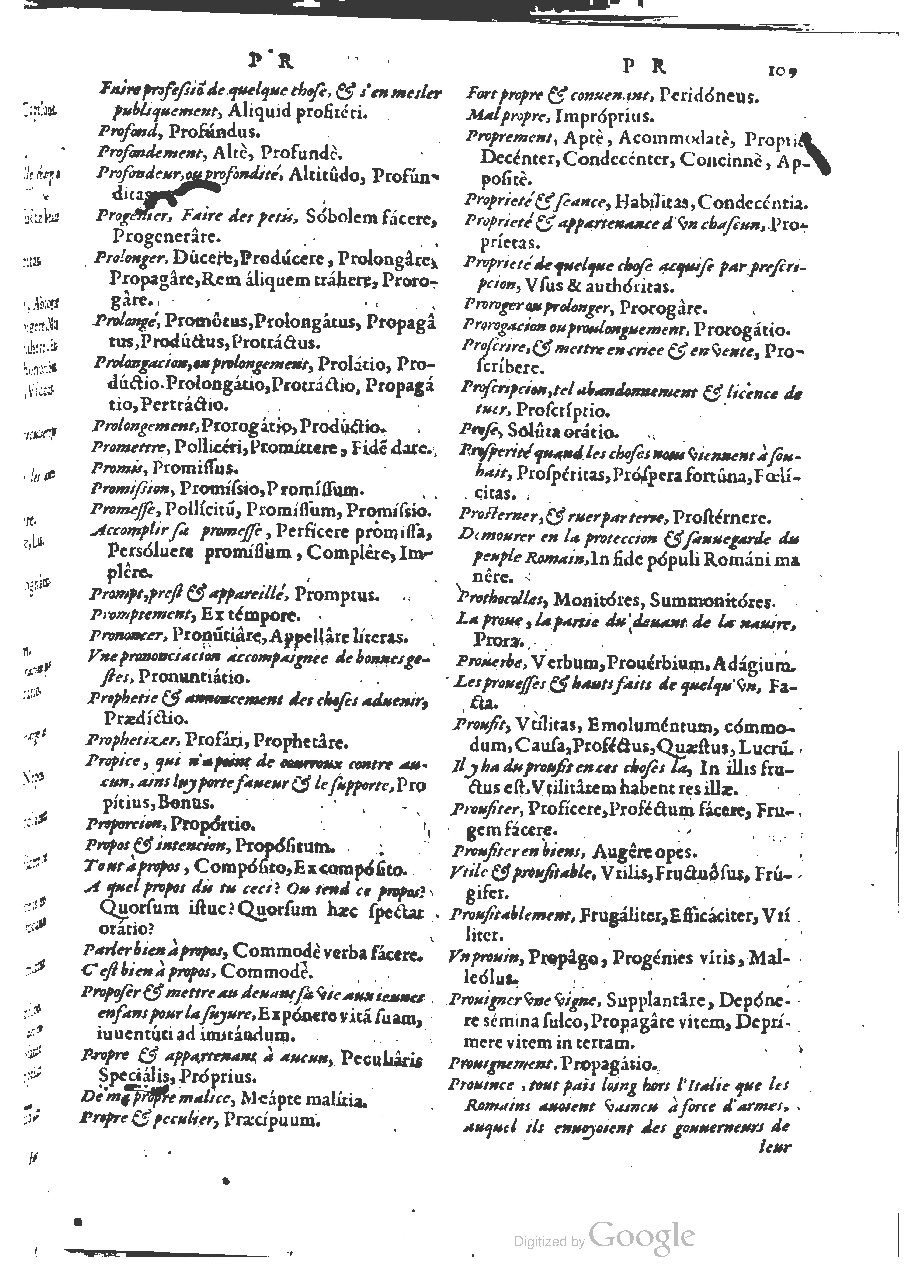 P R
Faire professiō de quelque chose, & s'en mesler
publiquement, Aliquid profitéri.
Profond, Profúndus.
Profondement, Altè, Profundè.
Profondeur, ou profondité, Altitûdo, Profún-
ditas
Progenier, Faire des petis, Sóbolem fácere,
Progenerâre.
Prolonger, Dúcere, Prodúcere, Prolongâre,
Propagâre, Rem áliquem tráhere, Proro-
gâre.
Prolongé, Promôtus, Prolongátus, Propagâ
tus, Prodúctus, Protráctus.
Prolongacion, ou prolongement, Prolátio, Pro-
dúctio. Prolongátio, Protráctio, Propagá
tio, Pertráctio.
Prolongement, Prorogátio, Prodúctio.
Promettre, Pollicéri, Promíttere, Fidē dare.
Promis, Promissus.
Promission, Promíssio, Promíssum.
Promesse, Pollícitū, Promíssum, Promíssio.
Accomplir sa promesse, Perfícere promíssa,
Persóluere promíssum, Complêre, Im-
plêre.
Prompt, prest & appareillé, Promptus.
Promptement, Ex témpore.
Prononcer, Pronūtiâre, Appellâre líteras.
Vne prononciacion accompaignee de bonnes ge-
stes, Pronuntiátio.
Prophetie & annoncement des choses aduenir,
Prædíctio.
Prophetizer, Profári, Prophetâre.
Propice, qui n'a point de courroux contre au-
cun, ains luy porte faueur & le supporte, Pro
pítius, Bonus.
Proporcion, Propórtio.
Propos & intencion, Propósitum.
Tout à propos, Compósito, Ex compósito.
A quel propos dis tu ceci? Ou tend ce propos?
Quorsum istuc? Quorsum hæc spectat
orátio?
Parler bien à propos, Commodè verba fácere.
C'est bien à propos, Commodè.
Proposer & mettre au deuant sa vie aux ieunes
enfans pour la suyure, Expónere vitā suam,
iuuentúti ad imitándum.
Propre & appartenant à aucun, Peculiâris
Speciális, Próprius.
De ma propre malice, Meápte malítia.
Propre & peculier, Præcípuum.
P R 109
Fort propre & conuenant, Peridóneus.
Mal propre, Impróprius.
Proprement, Aptè, Acommodatè, Propriè
Decénter, Condecénter, Concinnè, Ap-
positè.
Proprieté & seance, Habilitas, Condecéntia.
Proprieté & appartenance d'vn chascun, Pro-
príetas.
Proprieté de quelque chose acquise par prescri-
pcion, Vsus & authóritas.
Proroger ou prolonger, Prorogâre.
Prorogacion ou proulonguement, Prorogátio.
Proscrire, & mettre en criee & en vente, Pro-
scríbere.
Proscripcion, tel abandonnement & licence de
tuer, Proscríptio.
Prose, Solûta orátio.
Prosperité quand les choses nous viennent à sou-
hait, Prospéritas, Próspera fortûna, Fœlí-
citas.
Prosterner, & ruer par terre, Prostérnere.
Demourer en la proteccion & sauuegarde du
peuple Romain, In fide pópuli Románi ma
nêre.
Prothocolles, Monitóres, Summonitóres.
La proue, la partie du deuant de la nauire,
Prora.
Prouerbe, Verbum, Prouérbium, Adágium.
Les prouesses & hauts faits de quelqu'vn, Fa-
cta.
Proufit, Vtílitas, Emoluméntum, cómmo-
dum, Causa, Proféctus, Quæstus, Lucrū.
Il y ha du proufit en ces choses la, In illis fru-
ctus est. Vtilitârem habent res illæ.
Proufiter, Profícere, Proféctum fácere, Fru-
gem fácere.
Proufiter en biens, Augêre opes.
Vtile & proufitable, Vtilis, Fructuôsus, Frú-
gifer.
Proufitablement, Frugáliter, Efficáciter, Vtí
liter.
Vn prouin, Propâgo, Progénies vitis, Mal-
leólus.
Prouigner vne vigne, Supplantâre, Depóne-
re sémina sulco, Propagâre vitem, Deprí-
mere vitem in terram.
Prouignement, Propagátio.
Prouince, tout païs loing hors l'Italie que les
Romains auoient vaincu à force d'armes,
auquel ils enuoyoient des gouuerneurs de
leur
Digitized by Google